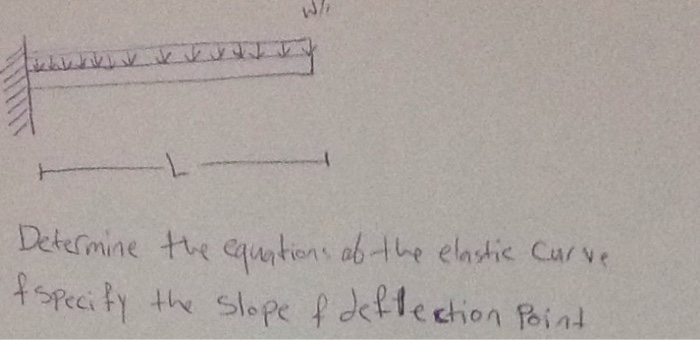 L
Determine the equations of the elastic curve
& specify the slope & deflection Point